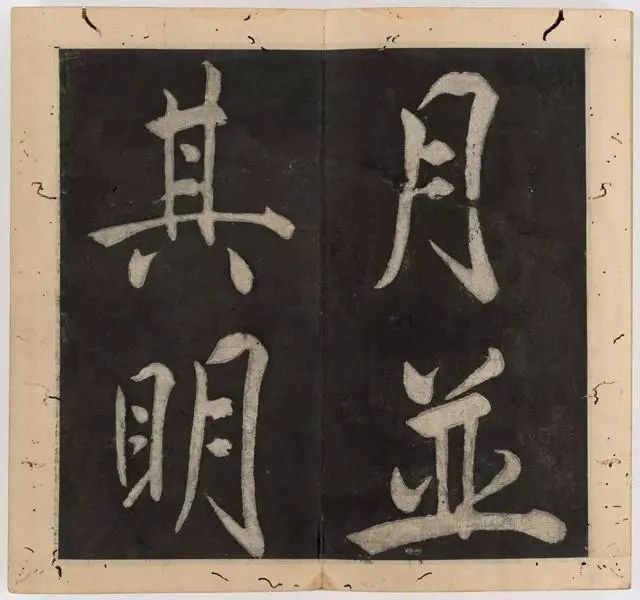 月並
其明